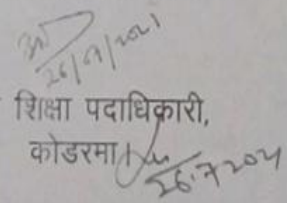 26/07/2021
शिक्षा पदाधिकारी,
कोडरमा।
26.7.2021